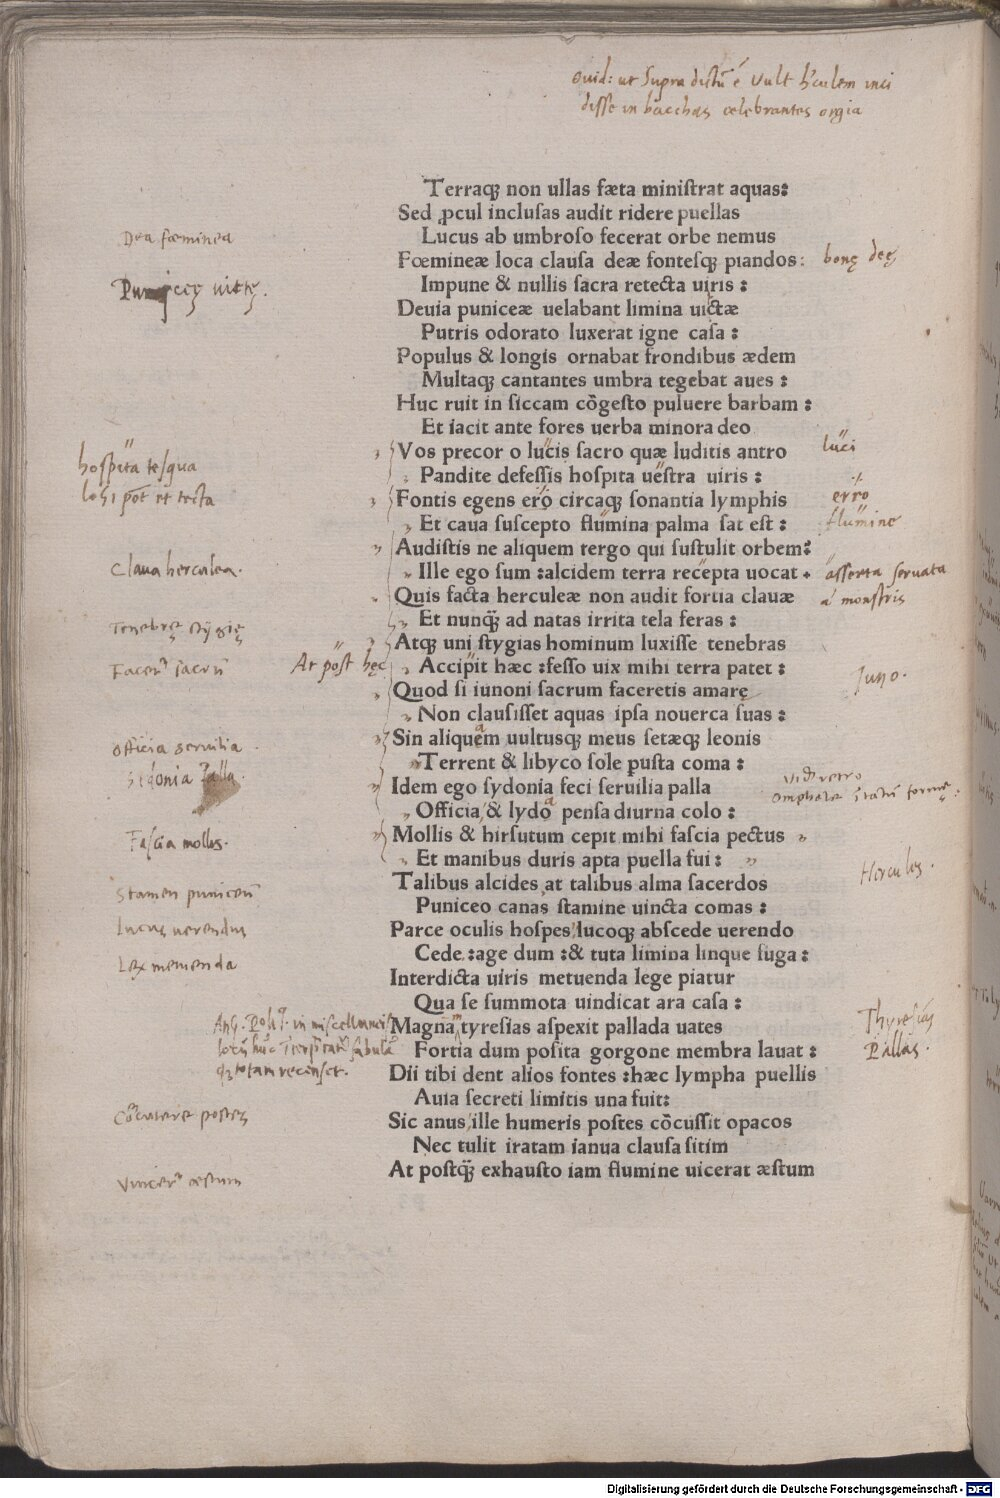 Ouid: ut supra dictū ē vult h'culem inci
disse in bacchas celebrantes orgia
Terraqꝫ non ullas fæta miniſtrat aquas:
Sed ꝓcul incluſas audit ridere puellas
Lucus ab umbroſo fecerat orbe nemus
Dea fœminea
Fœmineæ loca clauſa deæ fonteſqꝫ piandos:
bonę deę
Impune & nullis ſacra retecta uiris :
Puniceę uittę.
Deuia puniceæ uelabant limina uictæ
Putris odorato luxerat igne caſa :
Populus & longis ornabat frondibus ædem
Multaqꝫ cantantes umbra tegebat aues :
Huc ruit in ſiccam cōgeſto puluere barbam :
Et iacit ante fores uerba minora deo
Vos precor o lucis ſacro quæ luditis antro
luci
hospita tesqua
Pandite defeſſis hoſpita ueſtra uiris :
losi pōt et tecta
Fontis egens ero circaqꝫ ſonantia lymphis
erro
Et caua ſuſcepto flumina palma ſat eſt :
flumine
Audiſtis ne aliquem tergo qui ſuſtulit orbem:
Claua herculea.
Ille ego ſum :alcidem terra recepta uocat
asserta seruata
Quis facta herculeæ non audit fortia clauæ
a monstris
Et nunqꝫ̃ ad natas irrita tela feras :
Tenebrę stygię
Atqꝫ uni ſtygias hominum luxiſſe tenebras
At post hęc
Accipit hæc :feſſo uix mihi terra patet :
Juno.
Quod ſi iunoni ſacrum faceretis amarę
Non clauſiſſet aquas ipſa nouerca ſuas :
Sin aliquem uultuſqꝫ meus ſetæqꝫ leonis
officia seruilia
Terrent & libyco ſole puſta coma :
Sidonia Palla.
Idem ego ſydonia feci ſeruilia palla
Officia & lydo penſa diurna colo :
Fascia mollis.
Mollis & hirſutum cepit mihi faſcia pectus
Et manibus duris apta puella fui :
Hercules.
Talibus alcides at talibus alma ſacerdos
Stamen puniceū
Puniceo canas ſtamine uincta comas :
Lucus uerendus
Parce oculis hoſpes lucoqꝫ abſcede uerendo
Cede :age dum :& tuta limina linque fuga :
Interdicta uiris metuenda lege piatur
Qua ſe ſummota uindicat ara caſa :
Magnā tyreſias aſpexit pallada uates
Thyresias
Fortia dum poſita gorgone membra lauat :
Pallas.
Dii tibi dent alios fontes :hæc lympha puellis
qꝫ totam recenset.
Auia ſecreti limitis una fuit:
Sic anus ille humeris poſtes cōcuſſit opacos
Nec tulit iratam ianua clauſa ſitim
At poſtqꝫ̃ exhauſto iam flumine uicerat æſtum
Digitalisierung gefördert durch die Deutsche Forschungsgemeinschaft - DFG